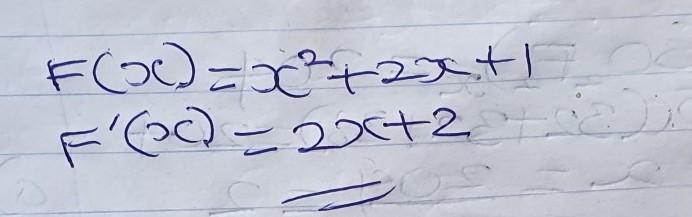 F(x)=x²+2x+1
F'(x)=2x+2